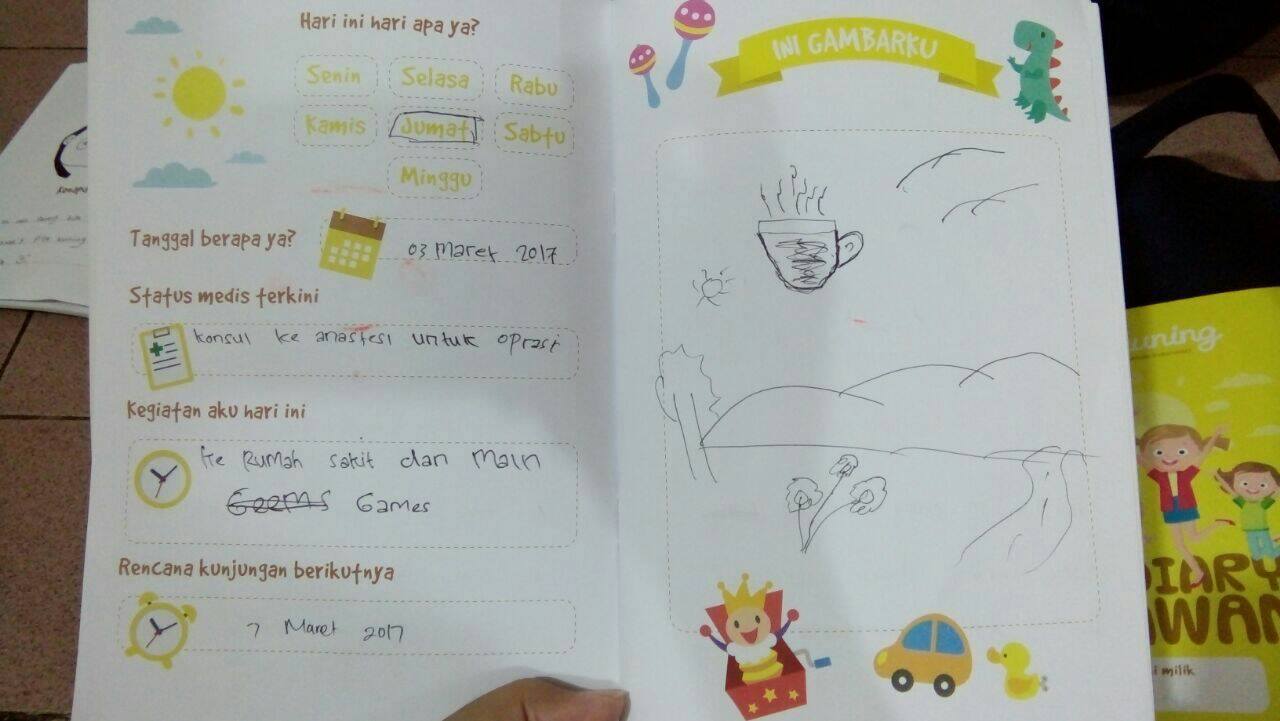 Hari ini hari apa ya?
Senin Selasa Rabu
Kamis Jumat Sabtu
Minggu
Tanggal berapa ya?
03 Maret 2017
Status medis terkini
konsul ke anastesi untuk oprasi
Kegiatan aku hari ini
ke Rumah sakit dan Main
Geems Games
Rencana kunjungan berikutnya
7 Maret 2017
INI GAMBARKU
uning
DIARY
WAN
i milik